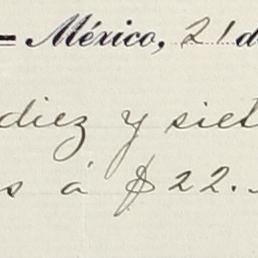 México, 21 d
diez y siet
s á $22.